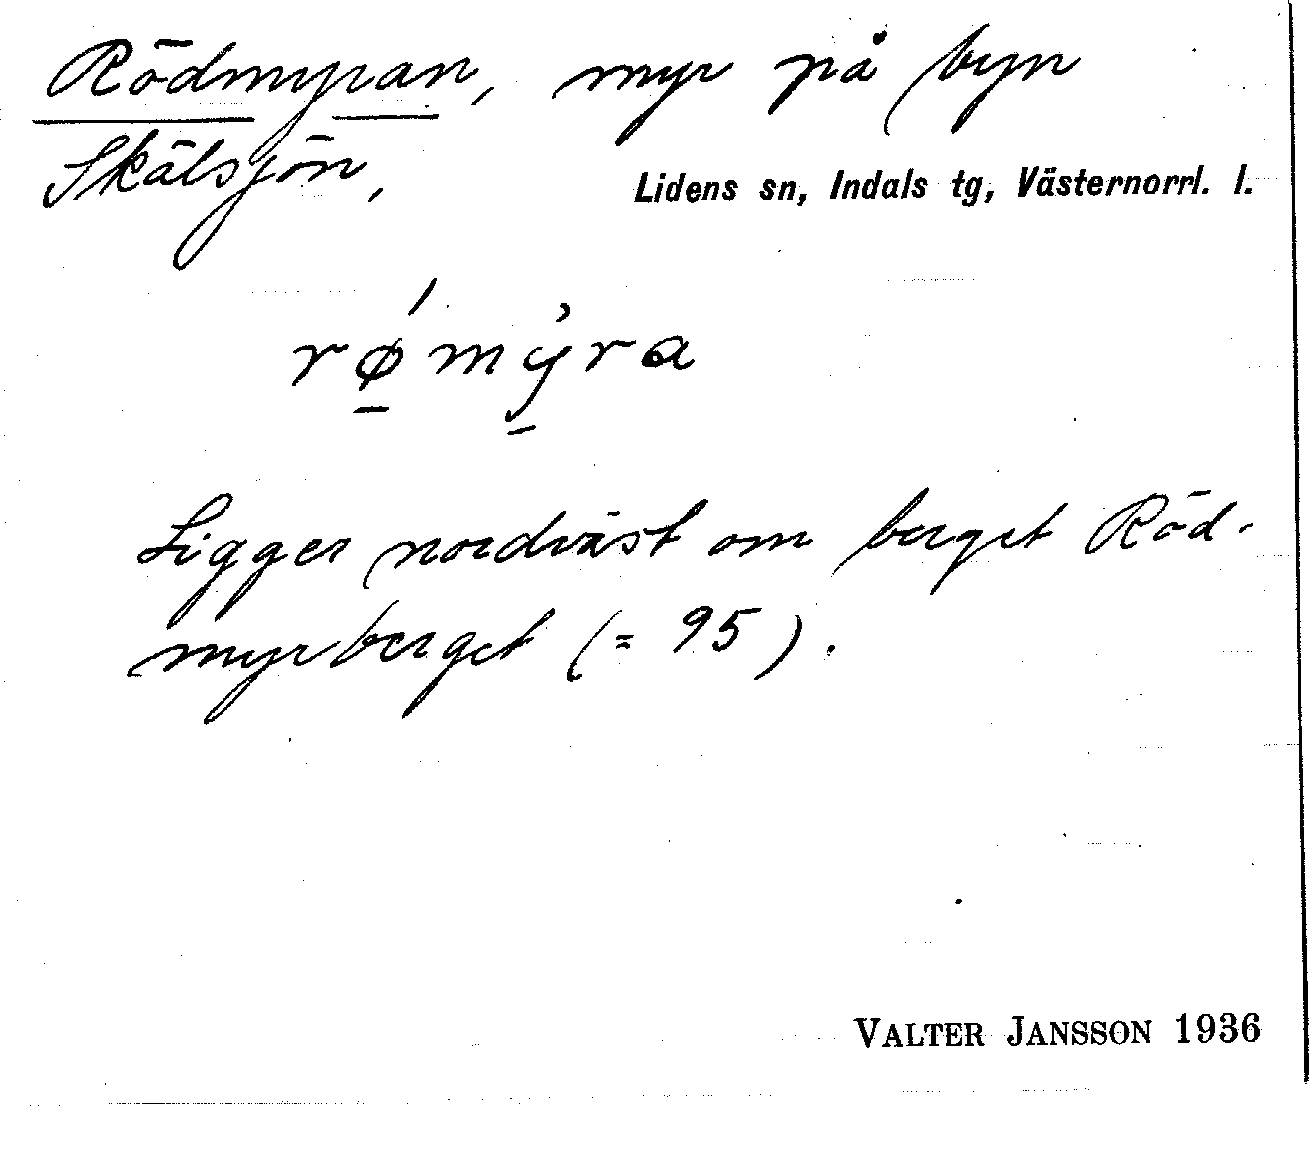 Rödmyran, myr på byn
Skälsjön,
Lidens sn, Indals tg, Västernorrl. l.
rǿ̱mỳ̱ra
Ligger nordväst om berget Röd-
myrberget (= 95).
VALTER JANSSON 1936